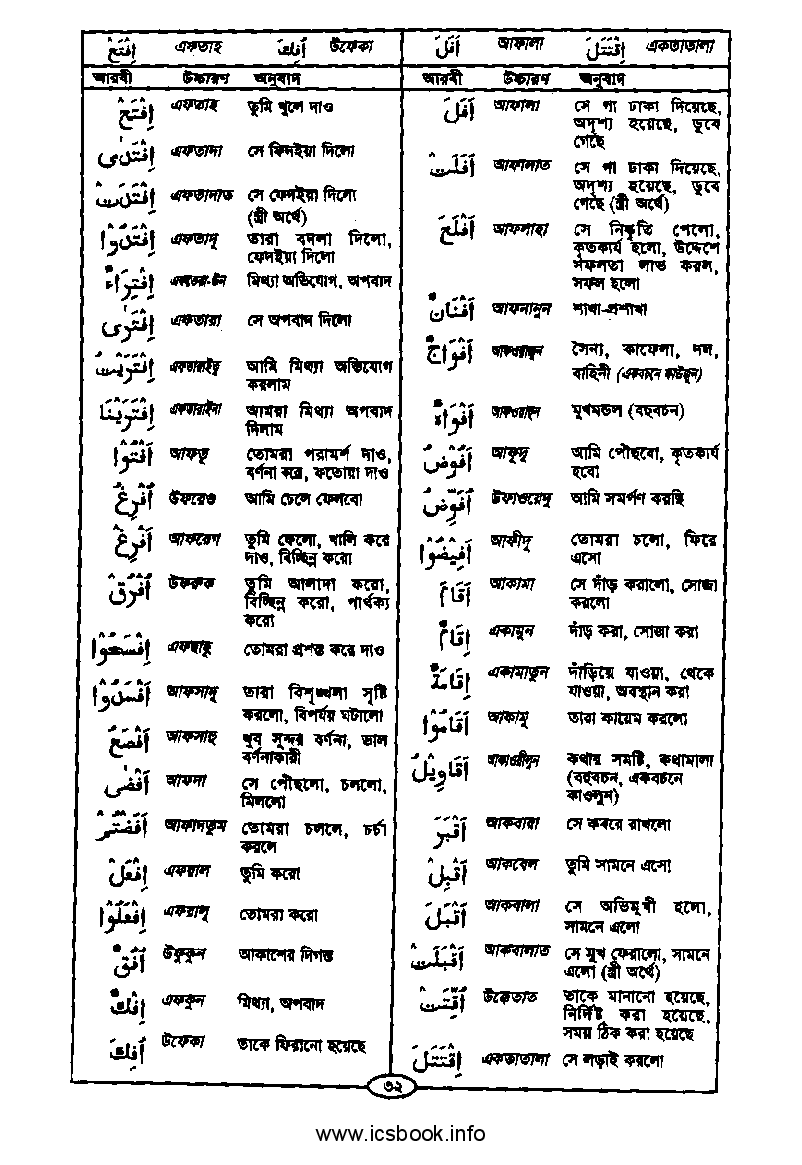 اِفْتَحْ এফতাহ اُفِكَ উফেকা
আরবী উচ্চারণ অনুবাদ
اِفْتَحْ এফতাহ তুমি খুলে দাও
اِفْتَدٰى এফতাদা সে ফিদইয়া দিলো
اِفْتَدَتْ এফতাদাত সে ফেদইয়া দিলো
(স্ত্রী অর্থে)
اِفْتَدَوْا এফতাদু তারা বদলা দিলো,
ফেদইয়া দিলো
اِفْتِرَاءً মিথ্যা অভিযোগ, অপবাদ
اِفْتَرٰى এফতারা সে অপবাদ দিলো
اِفْتَرَيْتُ এফতারাইতু আমি মিথ্যা অভিযোগ
করলাম
اِفْتَرَيْنَا এফতারাইনা আমরা মিথ্যা অপবাদ
দিলাম
اَفْتُوْا আফতু তোমরা পরামর্শ দাও,
বর্ণনা করে, ফতোয়া দাও
اُفْرِغْ উফরেগু আমি ঢেলে ফেলবো
اَفْرِغْ আফরেগ তুমি ফেলো, খালি করে
দাও, বিচ্ছিন্ন করো
اُفْرُقْ উফরুক তুমি আলাদা করো,
বিচ্ছিন্ন করো, পার্থক্য
করো
اِفْسَحُوْا এফছাহু তোমরা প্রশস্ত করে দাও
اَفْسَدُوْا আফসাদু তারা বিশৃংখলা সৃষ্টি
করলো, বিপর্যয় ঘটালো
اَفْصَحُ আফসাহু খুব সুন্দর বর্ণনা, ভাল
বর্ণনাকারী
اَفْضٰى আফদা সে পৌছলো, চললো,
মিললো
اَفَضْتُمْ আফাদতুম তোমরা চললে, চর্চা
করলে
اِفْعَلْ এফয়াল তুমি করো
اِفْعَلُوْا এফয়ালু তোমরা করো
اُفُقٌ উফুকুন আকাশের দিগন্ত
اِفْكٌ এফকুন মিথ্যা, অপবাদ
اُفِكَ উফেকা তাকে ফিরানো হয়েছে
اَفَلَ আফালা اِقْتَتَلَ একতাতালা
আরবী উচ্চারণ অনুবাদ
اَفَلَ আফালা সে গা ঢাকা দিয়েছে,
অদৃশ্য হয়েছে, ডুবে
গেছে
اَفَلَتْ আফালাত সে গা ঢাকা দিয়েছে,
অদৃশ্য হয়েছে, ডুবে
গেছে (স্ত্রী অর্থে)
اَفْلَحَ আফলাহা সে নিষ্কৃতি পেলো,
কৃতকার্য হলো, উদ্দেশে
সফলতা লাভ করল,
সফল হলো
اَفْنَانٌ আফনানুন শাখা-প্রশাখা
اَفْوَاجٌ আফওয়াজুন সৈন্য, কাফেলা, দল,
বাহিনী (একবচনে ফাউজুন)
اَفْوَاهٌ আফওয়াহুন মুখমন্ডল (বহুবচন)
اَفُوْضُ আফুদু আমি পৌছবো, কৃতকার্য
হবো
اُفَوِّضُ উফাওয়েদু আমি সমর্পণ করছি
اَفِيْضُوْا আফীদু তোমরা চলো, ফিরে
এসো
اَقَامَ আকামা সে দাঁড় করালো, সোজা
করলো
اِقَامٌ একামুন দাঁড় করা, সোজা করা
اِقَامَةٌ একামাতুন দাঁড়িয়ে যাওয়া, থেকে
যাওয়া, অবস্থান করা
اَقَامُوْا আকামু তারা কায়েম করলো
اَقَاوِيْلُ আকাওয়ীলুন কথার সমষ্টি, কথামালা
(বহুবচন, একবচনে
কাওলুন)
اَقْبَرَ আকবারা সে কবরে রাখলো
اَقْبِلْ আকবেল তুমি সামনে এসো
اَقْبَلَ আকবালা সে অভিমুখী হলো,
সামনে এলো
اَقْبَلَتْ আকবালাত সে মুখ ফেরালো, সামনে
এলো (স্ত্রী অর্থে)
اُقِّتَتْ উক্কেতাত তাকে মানানো হয়েছে,
নির্দিষ্ট করা হয়েছে,
সময় ঠিক করা হয়েছে
اِقْتَتَلَ একতাতালা সে লড়াই করলো
৩২
www.icsbook.info